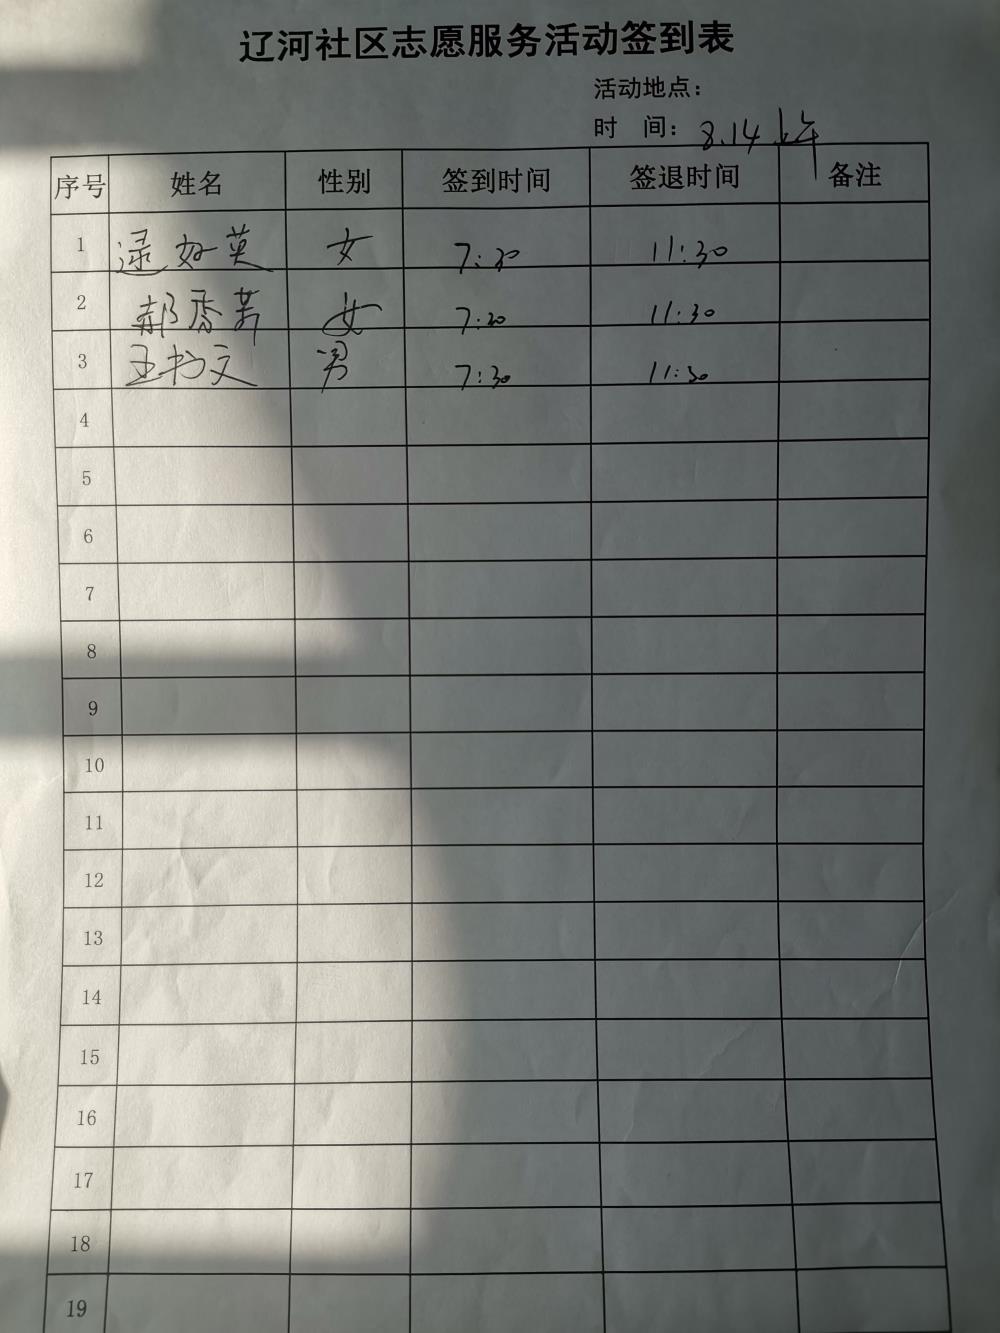 辽河社区志愿服务活动签到表
活动地点：
时 间： 8.14 上午
序号 姓名 性别 签到时间 签退时间 备注
1 逯好英 女 7:30 11:30
2 郝香菊 女 7:20 11:30
3 王书文 男 7:30 11:30
4
5
6
7
8
9
10
11
12
13
14
15
16
17
18
19